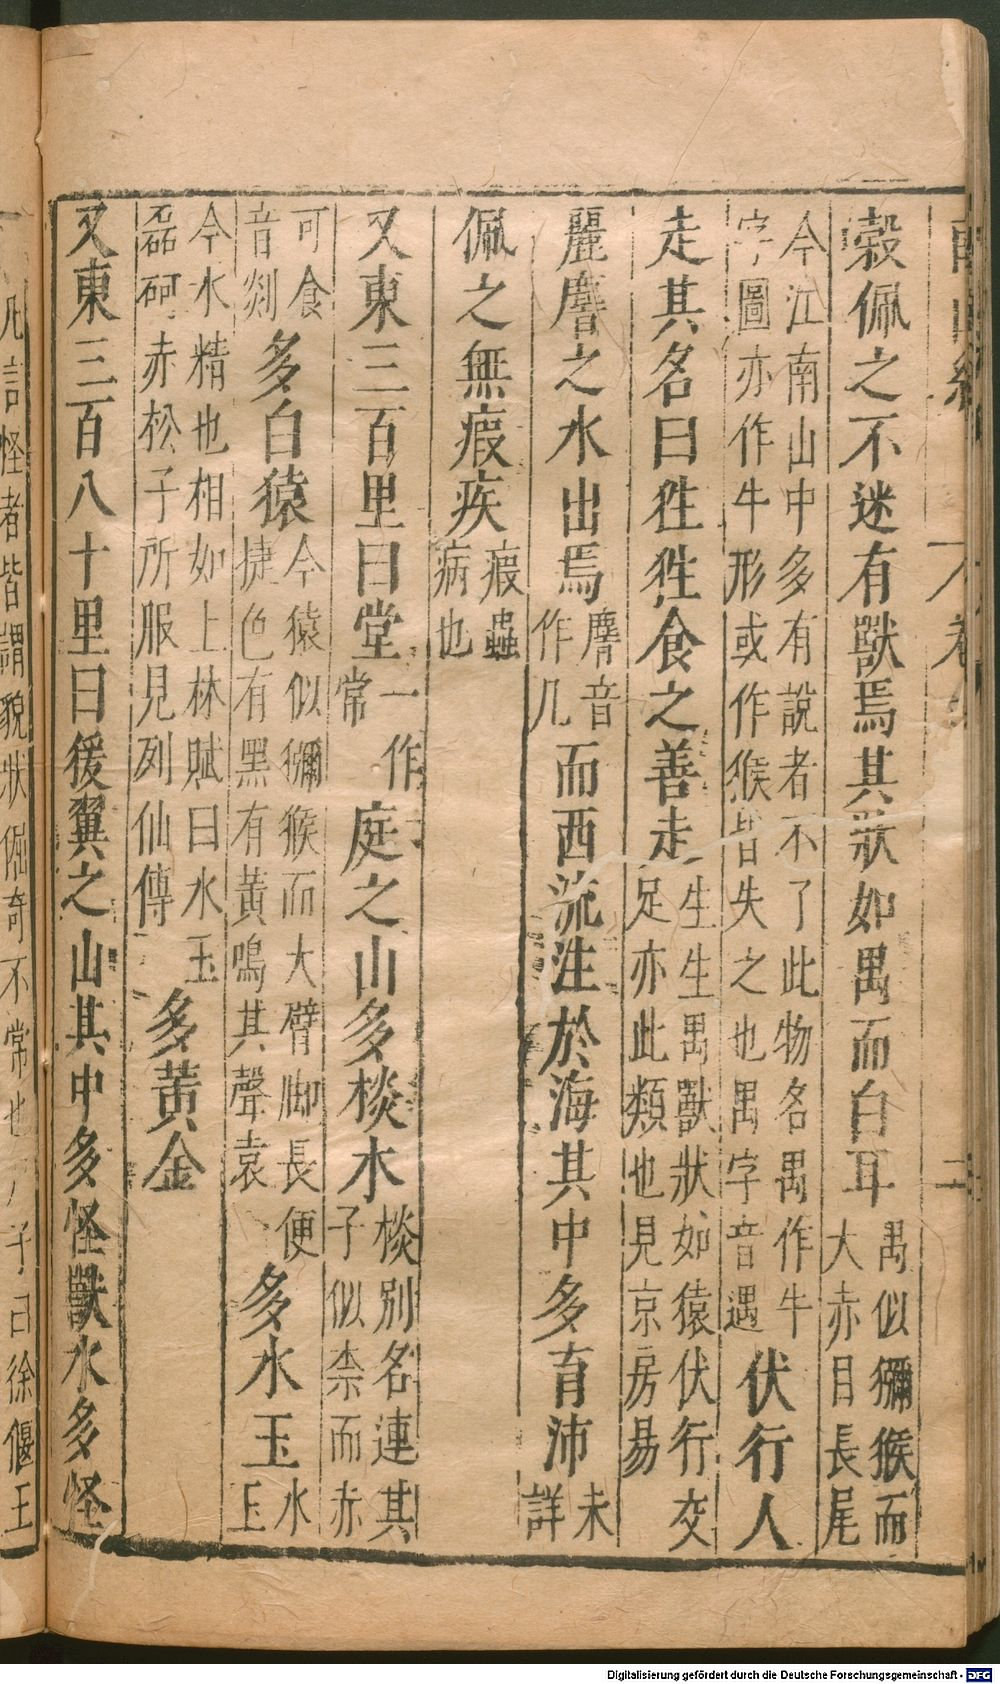 南山經 卷 二
榖佩之不迷有獸焉其狀如禺而白耳禺似獼猴而大赤目長尾
今江南山中多有說者不了此物名禺作牛字圖亦作牛形或作猴皆失之也禺字音遇伏行人
走其名曰狌狌食之善走生生禺獸狀如猿伏行交足亦此類也見京房易
麗麐之水出焉麐音作几而西流注於海其中多育沛未詳
佩之無瘕疾瘕蟲病也
又東三百里曰堂一作常庭之山多棪木棪別名連其子似柰而赤
可食音剡多白猿今猿似獼猴而大臂脚長便捷色有黑有黃鳴其聲哀多水玉水玉
今水精也相如上林賦曰水玉磊砢赤松子所服見列仙傳多黃金
又東三百八十里曰猨翼之山其中多怪獸水多怪
凡言怪者皆謂貌狀倔奇不常也尸子曰徐偃王
Digitalisierung gefördert durch die Deutsche Forschungsgemeinschaft - DFG